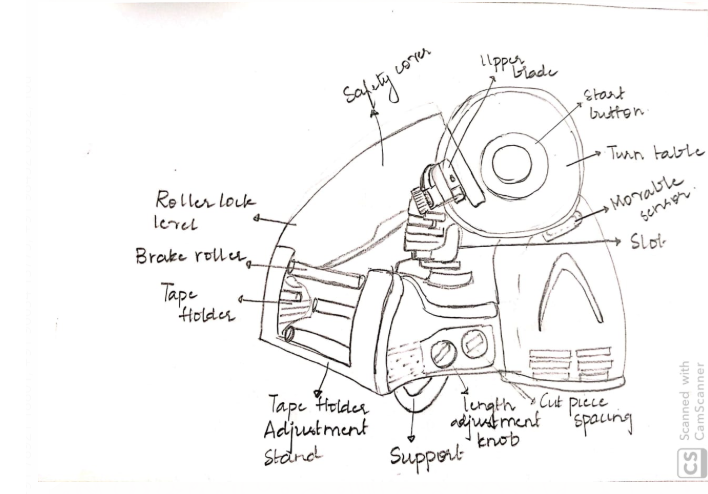 Safety cover
Upper
blade
Start
button.
Turn table
Movable
sensor.
Slot
Roller lock
level
Brake roller
Tape
Holder
Tape Holder
Adjustment
Stand
Support
length
adjustment
knob
Cut piece
spacing
CS
Scanned with
CamScanner